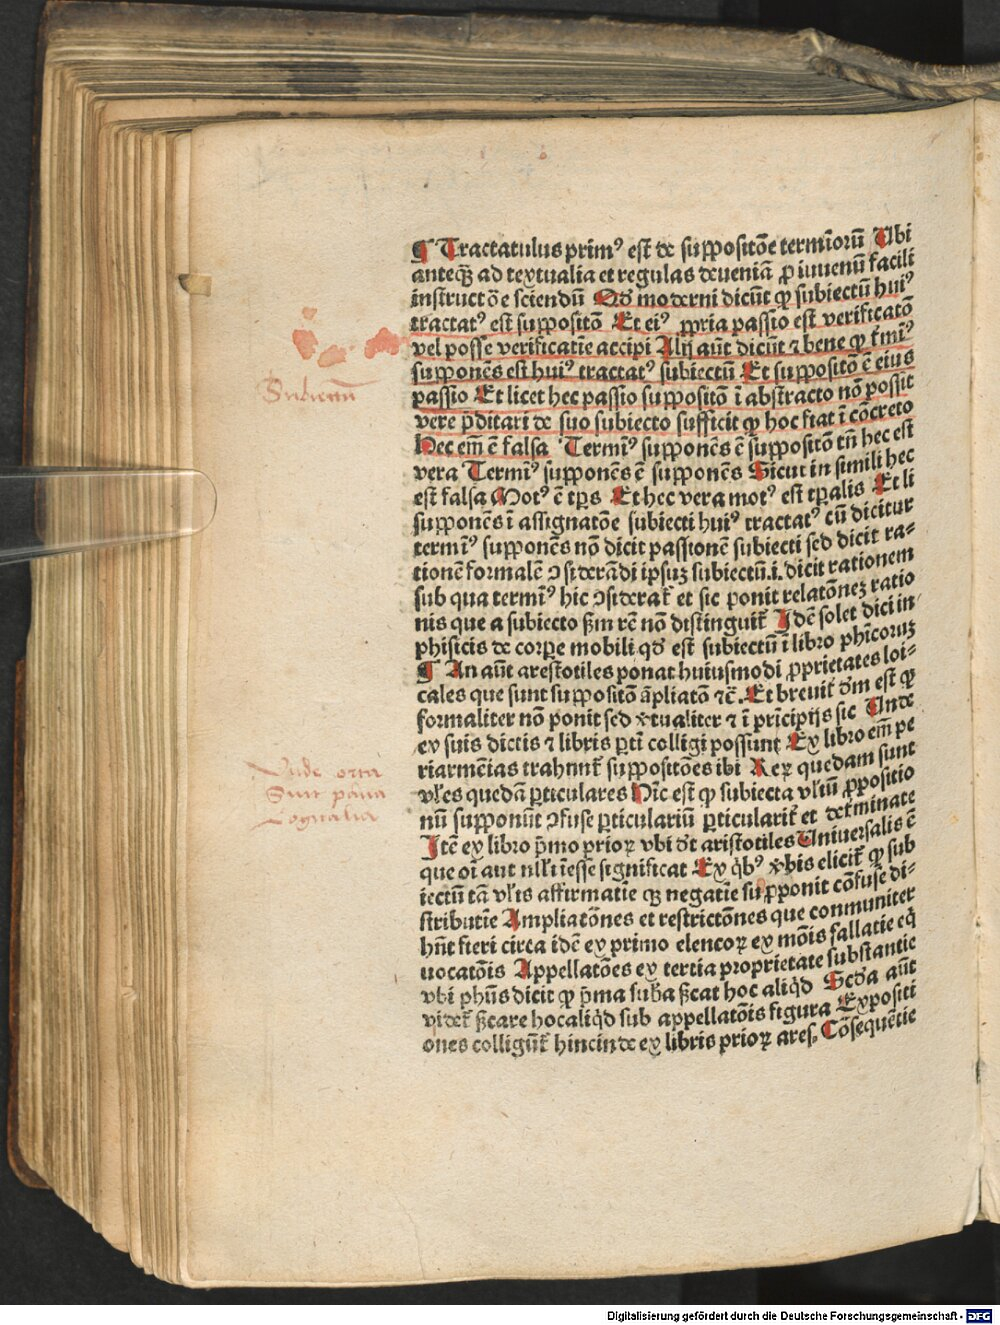 ¶ Tractatulus prim⁹ est de suppositōe termiorū Ubi
anteq̄ ad textualia et regulas deueniā ꝓ iuuenū facili
instructōe sciendū Qd̛ moderni dicūt ꝙ subiectū hui⁹
tractat⁹ est suppositō Et ei⁹ ꝓpria passio est verificatō
vel posse verificatiē accipi Alij aūt dicūt ⁊ bene ꝙ t̛mi⁹
supponēs est hui⁹ tractat⁹ subiectū Et suppositō ē eius
passio Et licet hec passio suppositō ī abstracto nō possit
vere p̄ditari de suo subiecto sufficit ꝙ hoc fiat ī cōcreto
Hec em̄ ē falsa Termi⁹ supponēs ē suppositō tn̄ hec est
vera Termi⁹ supponēs ē supponēs Sicut in simili hec
est falsa Mot⁹ ē tp̄s Et hec vera mot⁹ est tp̄alis Et li
supponēs ī assignatōe subiecti hui⁹ tractat⁹ cū dicitur
termi⁹ supponēs nō dicit passionē subiecti sed dicit ra⸗
tionē formalē ꝯsiderādi ipsuꝫ subiectū.i. dicit rationem
sub qua termi⁹ hic ꝯsiderat̛ et sic ponit relatōneꝫ ratio
nis que a subiecto ẜm rē nō distinguit̛ Idē solet dici in
phisicis de corꝑe mobili qd̛ est subiectū ī libro phīcoruꝫ
¶ An aūt arestotiles ponat huiusmodi ꝓprietates loi⸗
cales que sunt suppositō āpliatō ⁊c̄. Et breuit̛ d̛m est ꝙ
formaliter nō ponit sed v̛tualiter ⁊ ī prīcipijs sic Unde
ex suis dictis ⁊ libris ꝑti colligi possunt Ex libro em̄ pe
riarmēias trahunt̛ suppositōes ibi Reꝝ quedam sunt
vl̛es quedā ꝑticulares Hīc est ꝙ subiecta vl̛iū ꝓpositio
nū supponūt ꝯfuse ꝑticulariū ꝑticularit̛ et det̛minate
Itē ex libro p̄mo prioꝝ vbi d̛t aristotiles Uniuersalis ē
que oī aut nll̛i īesse significat Ex q̄b⁹ v̛bis elicit̛ ꝙ sub
iectū tā vl̛is affirmatie ꝙ negatie supponit cōfuse di⸗
stributie Ampliatōnes et restrictōnes que conmuniter
hn̄t fieri circa idē ex primo elencoꝝ ex mōis fallatie eq̄
uocatōis Appellatōes ex tertia proprietate substantie
vbi ph̄us dicit ꝙ p̄ma sub̄a ẜcat hoc aliq̄d Scd̛a aūt
videt̛ ẜcare hocaliq̄d sub appellatōis figura Expositi
ones colligūt̛ hincinde ex libris prioꝝ ares. Cōsequētie
Subiectum
Unde orta
Sunt parua
Logicalia
Digitalisierung gefördert durch die Deutsche Forschungsgemeinschaft - DFG